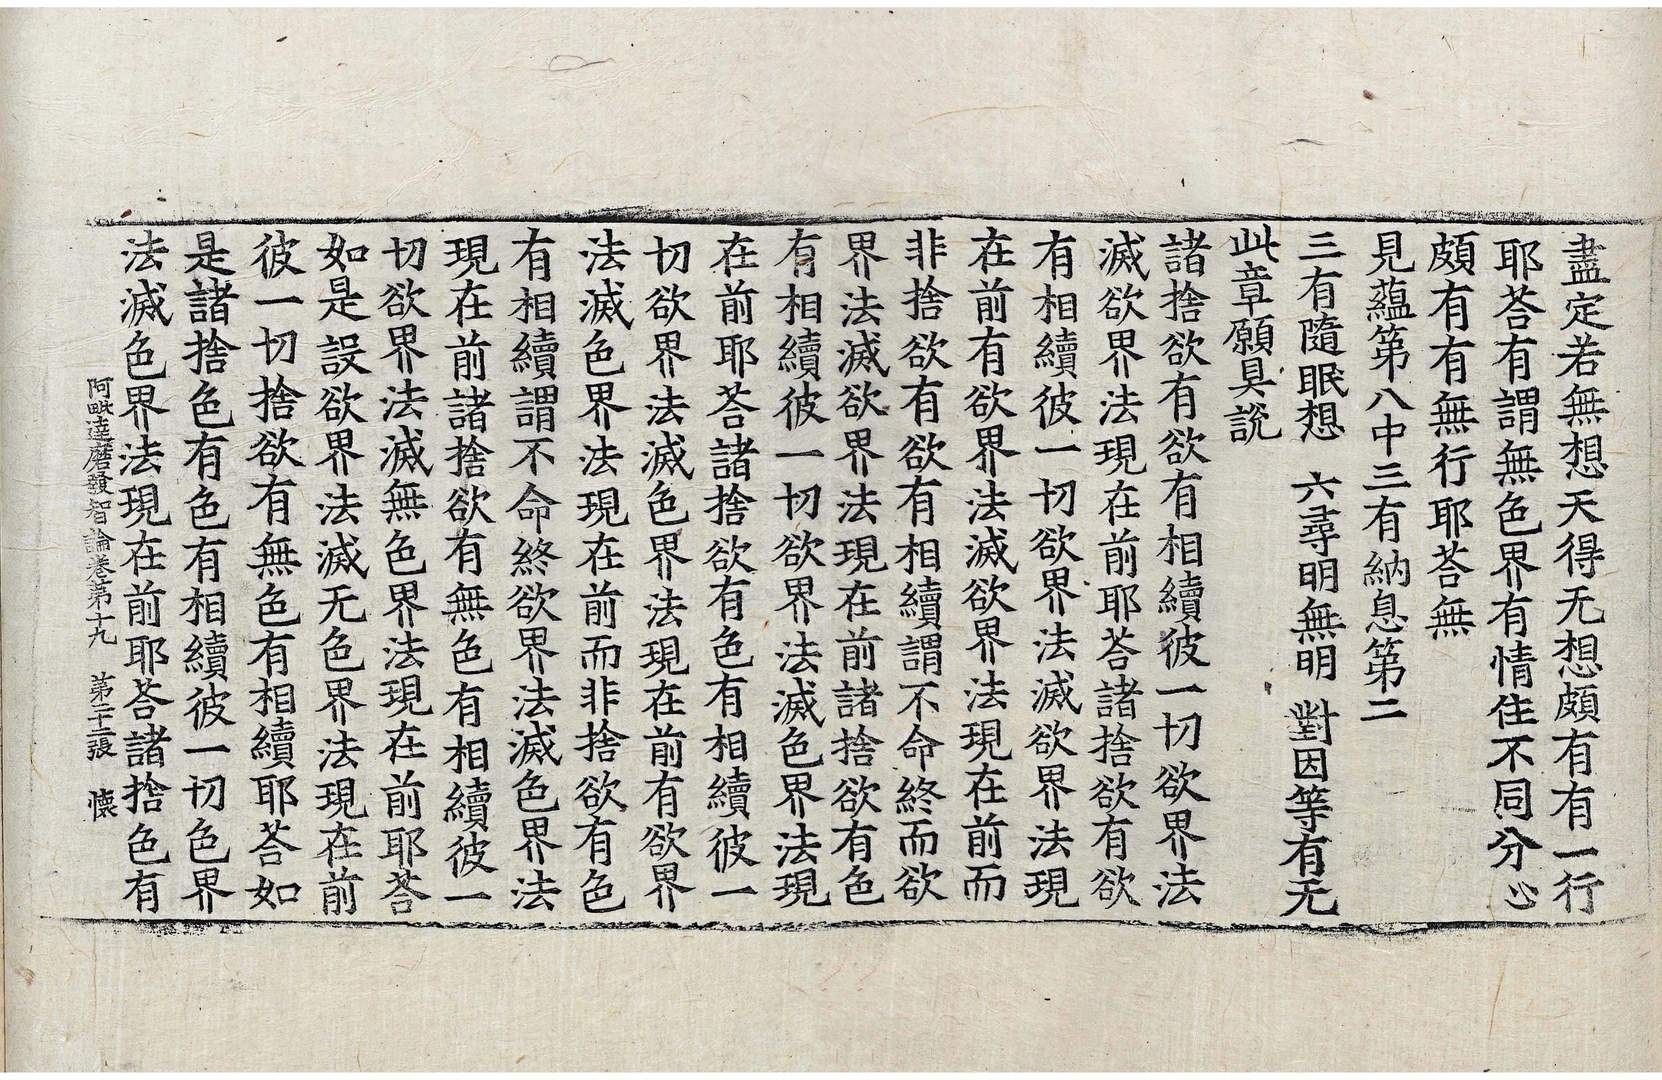 盡定若無想天得无想頗有有一行
耶荅有謂無色界有情住不同分心
頗有有無行耶荅無
見蘊第八中三有納息第二
三有隨眠想 六尋明無明 對因等有无
此章願具說
諸捨欲有欲有相續彼一切欲界法
滅欲界法現在前耶荅諸捨欲有欲
有相續彼一切欲界法滅欲界法現
在前有欲界法滅欲界法現在前而
非捨欲有欲有相續謂不命終而欲
界法滅欲界法現在前諸捨欲有色
有相續彼一切欲界法滅色界法現
在前耶荅諸捨欲有色有相續彼一
切欲界法滅色界法現在前有欲界
法滅色界法現在前而非捨欲有色
有相續謂不命終欲界法滅色界法
現在前諸捨欲有無色有相續彼一
切欲界法滅無色界法現在前耶荅
如是設欲界法滅无色界法現在前
彼一切捨欲有無色有相續耶荅如
是諸捨色有色有相續彼一切色界
法滅色界法現在前耶荅諸捨色有
阿毗達磨發智論卷第十九 第二十三張 懷